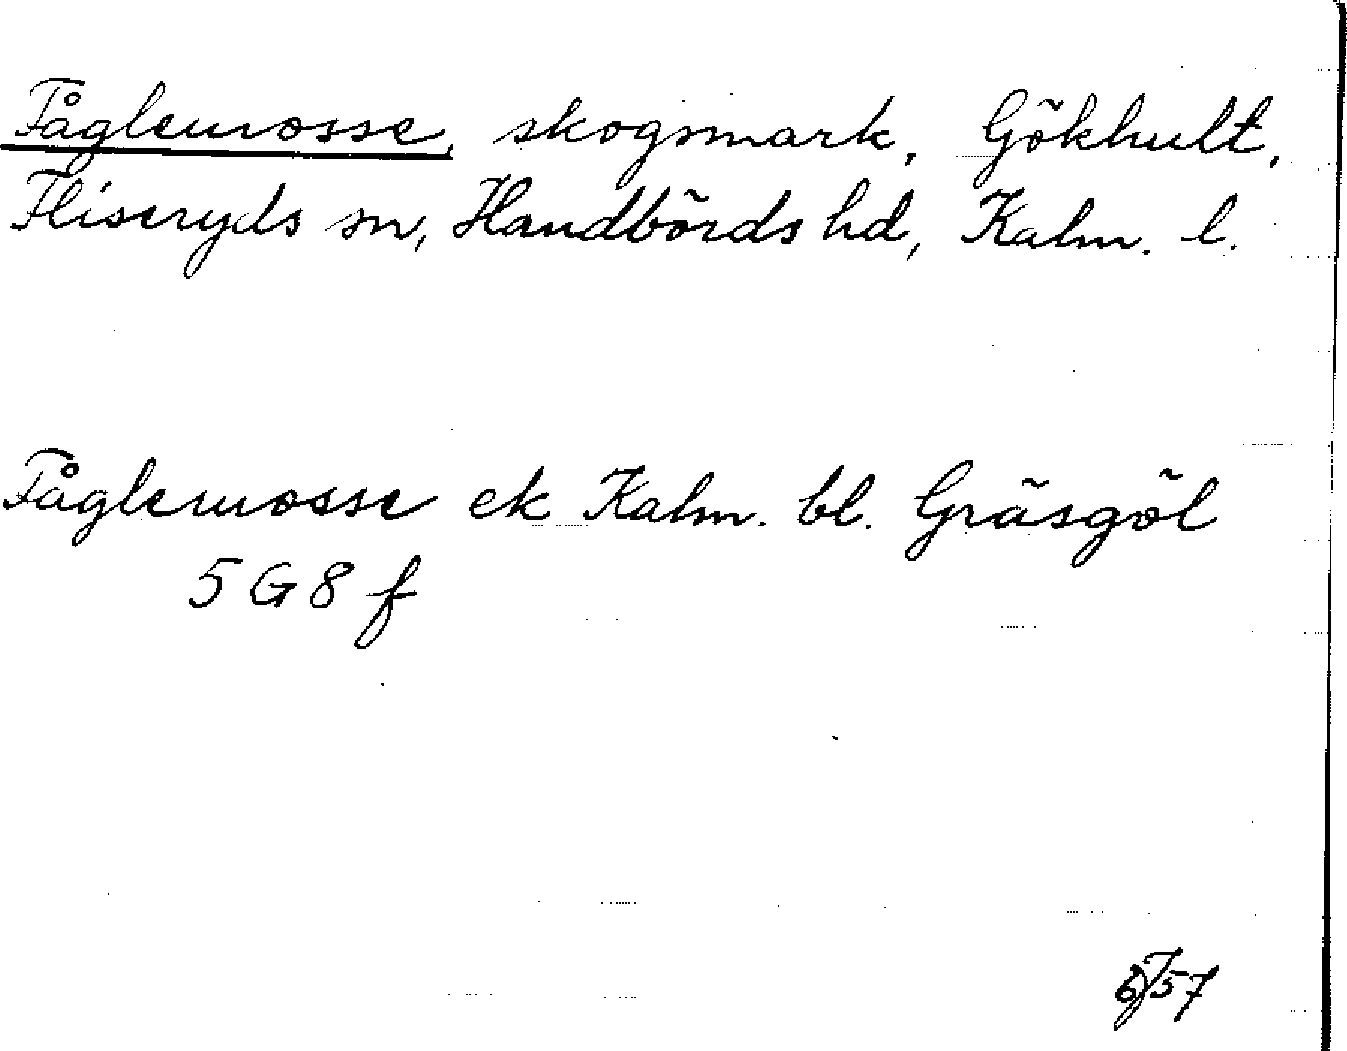 Fåglemosse, skogsmark, Gökhult,
Fliseryds sn, Handbörds hd, Kalm. l.
Fåglemosse ek Kalm. bl. Gräsgöl
5 G 8 f